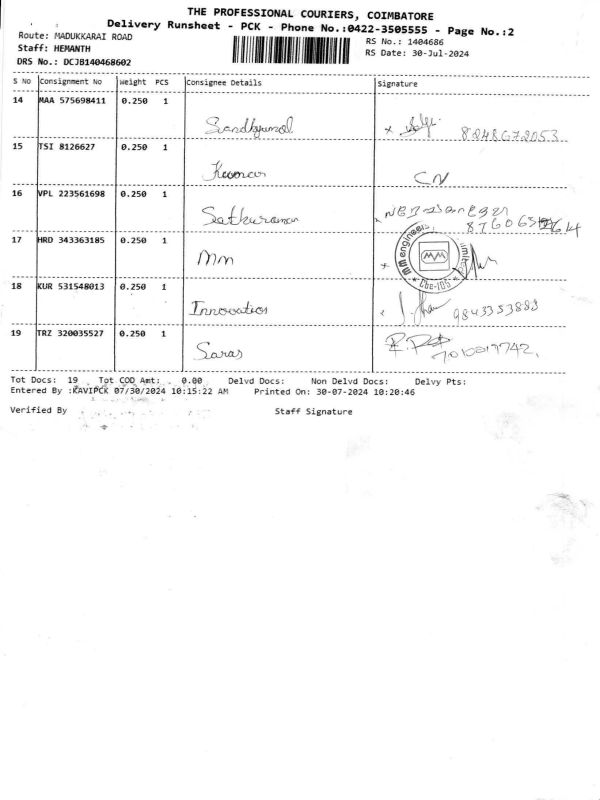 THE PROFESSIONAL COURIERS, COIMBATORE
Delivery Runsheet - PCK - Phone No.:0422-3505555 - Page No.:2
Route: MADUKKARAI ROAD
RS No.: 1404686
Staff: HEMANTH
RS Date: 30-Jul-2024
DRS No.: DCJB140468602
S No Consignment No Weight PCS Consignee Details Signature
14 MAA 575698411 0.250 1
8248672053
15 TSI 8126627 0.250 1
Kumar CN
16 VPL 223561698 0.250 1
Sathuraman
17 HRD 343363185 0.250 1
MM
MM engineers
Cbe-105
18 KUR 531548013 0.250 1
Innovation 9843353883
19 TRZ 320035527 0.250 1
Saras
Tot Docs: 19 Tot COD Amt: 0.00 Delvd Docs: Non Delvd Docs: Delvy Pts:
Entered By :KAVIPCK 07/30/2024 10:15:22 AM Printed On: 30-07-2024 10:20:46
Verified By Staff Signature